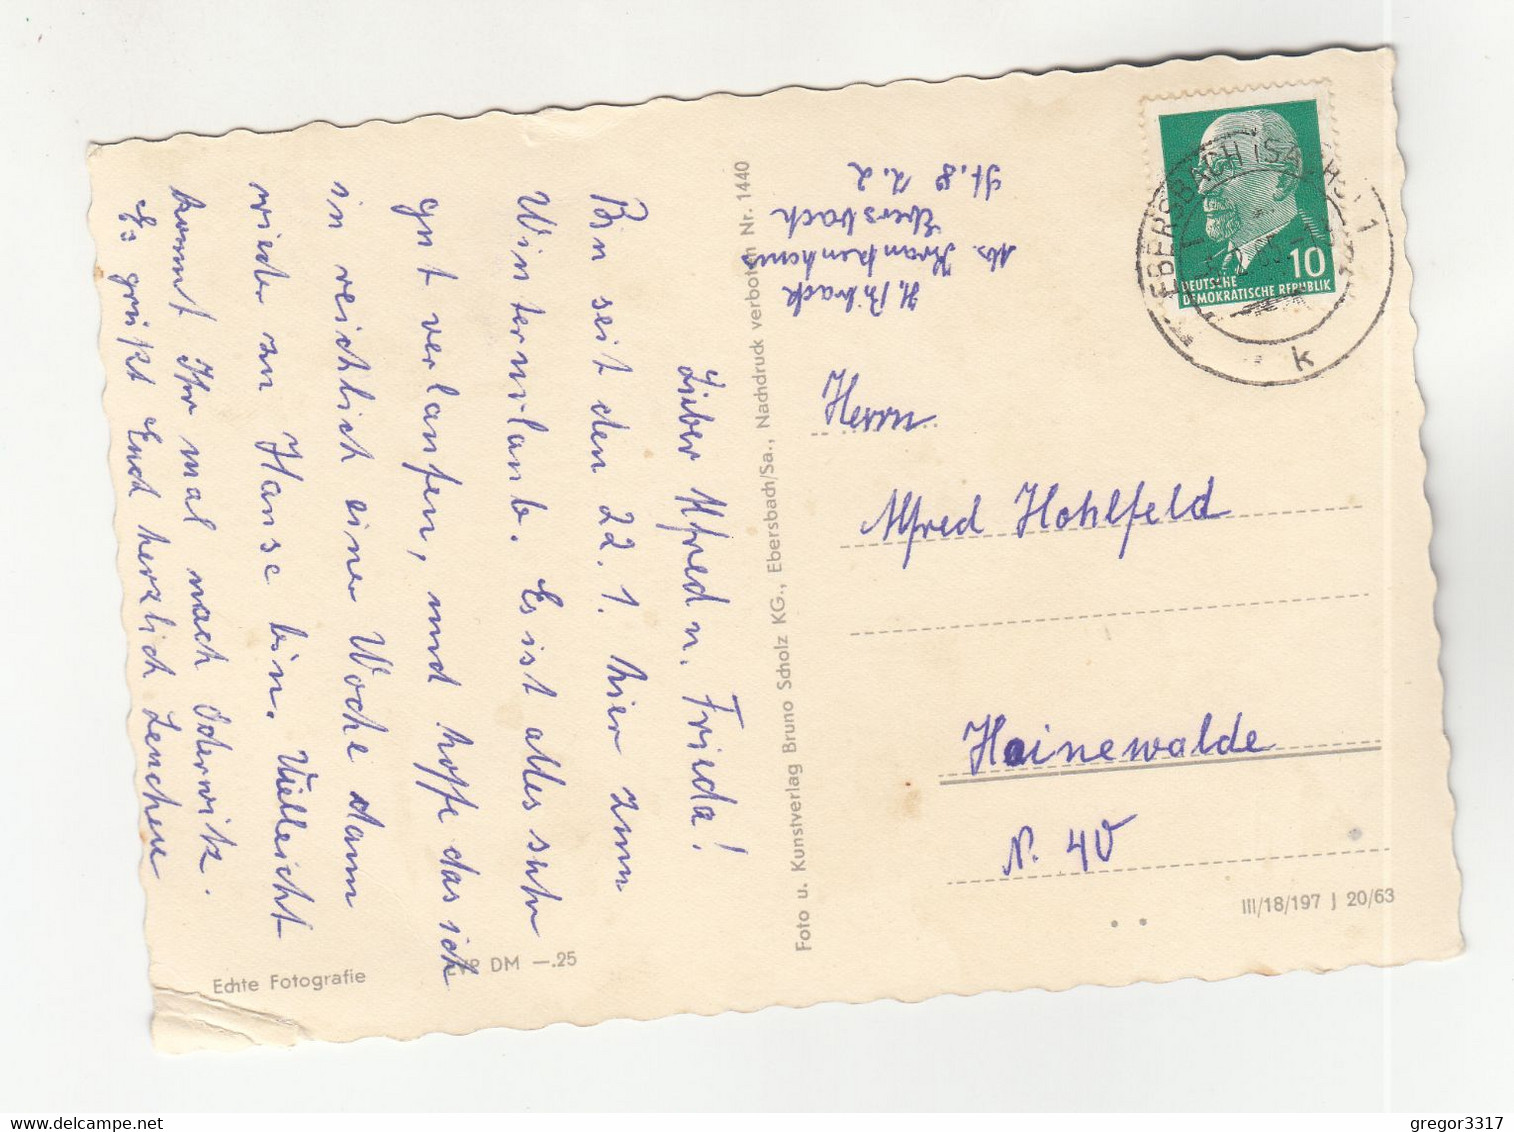 Lieber Alfred u. Frieda!
Bin seit den 22.1. hier zum
Winterurlaub. Es ist alles sehr
gut verlaufen, und hoffe das ich
in reichlich einer Woche dann
wieder zu Hause bin. Vielleicht
kommt Ihr mal nach Oderwitz.
Es grüßt Euch herzlich Lenchen
Echte Fotografie
EVP DM —.25
Foto u. Kunstverlag Bruno Scholz KG., Ebersbach/Sa., Nachdruck verboten Nr. 1440
Krankenhaus
Ebersbach
St. 8 Z. 2
EBERSBACH (SACHS) 1
k
10
DEUTSCHE
DEMOKRATISCHE REPUBLIK
Herrn
Alfred Hohlfeld
Hainewalde
N. 40
III/18/197 J 20/63
gregor3317